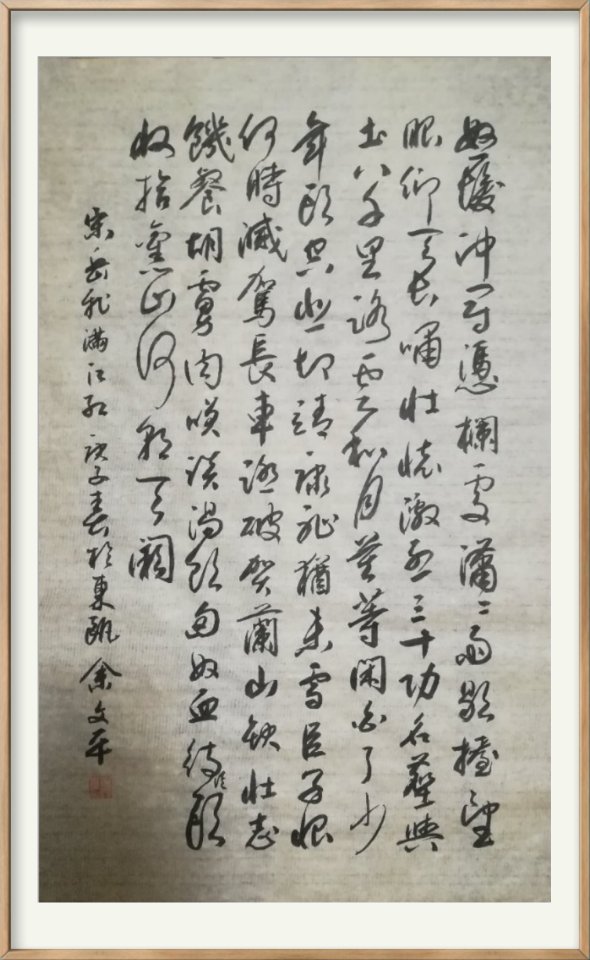 怒髮冲冠憑欄處瀟〻雨歇擡望
眼仰天長嘯壯懷激烈三十功名塵與
土八千里路雲和月莫等閑白了少
年頭空悲切靖康恥猶未雪臣子恨
何時滅駕長車踏破賀蘭山缺壯志
饑餐胡虜肉笑談渴飲匈奴血待從頭
收拾舊山河朝天闕
宋岳飛滿江紅庚子春於東甌余文平